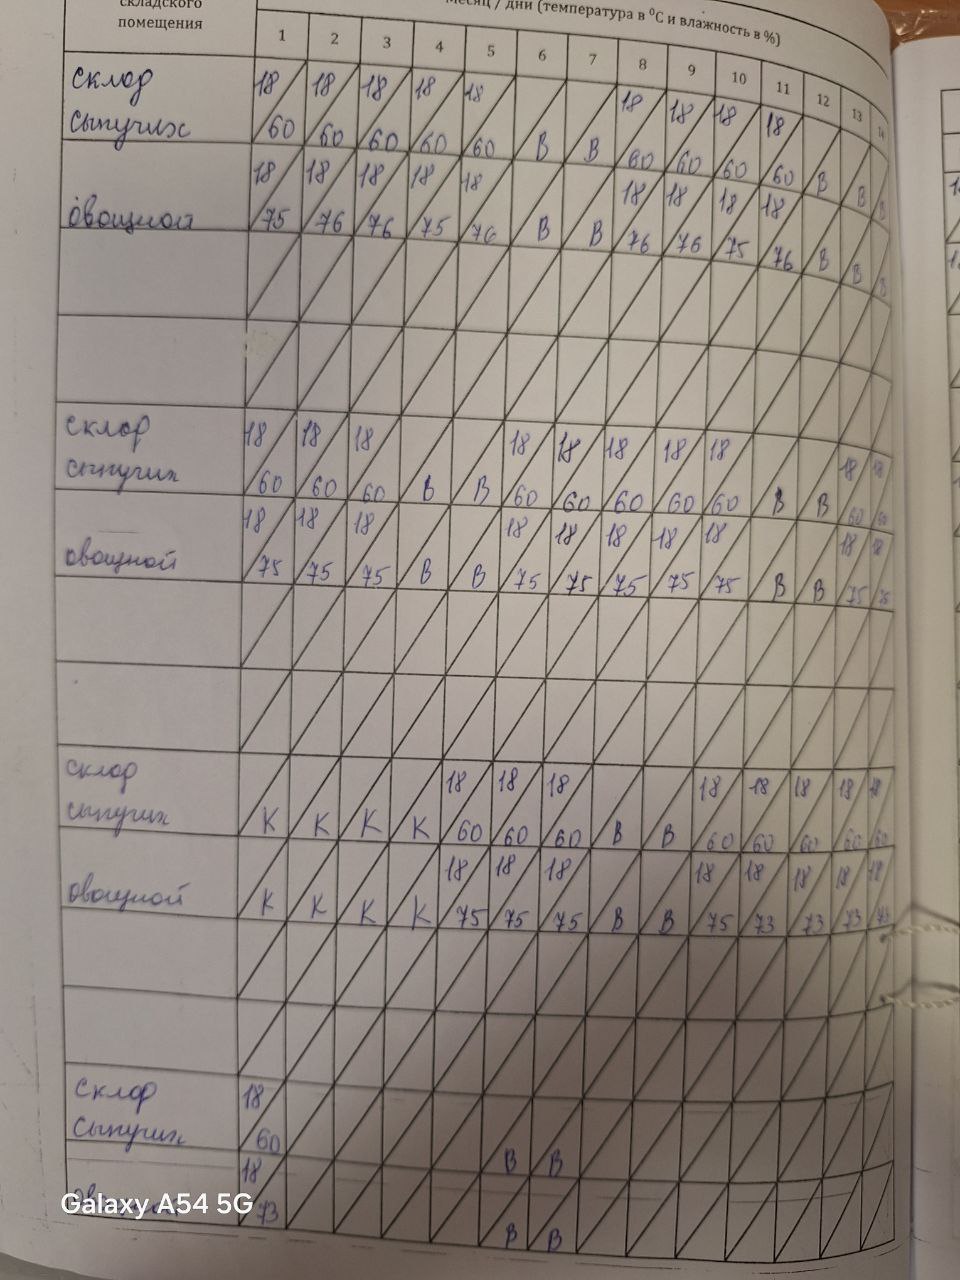 складского
помещения
месяц / дни (температура в ⁰С и влажность в %)
1 2 3 4 5 6 7 8 9 10 11 12 13 14
склад 18 18 18 18 18 18 18 18 18
сыпучих 60 60 60 60 60 В В 60 60 60 60 В В В
18 18 18 18 18 18 18 18 18
овощной 75 76 76 75 76 В В 76 76 75 76 В В В
склад 18 18 18 18 18 18 18 18 18 18
сыпучих 60 60 60 В В 60 60 60 60 60 В В 60 60
18 18 18 18 18 18 18 18 18 18
овощной 75 75 75 В В 75 75 75 75 75 В В 75 75
склад 18 18 18 18 18 18 18 18
сыпучих К К К К 60 60 60 В В 60 60 60 60 60
18 18 18 18 18 18 18 18
овощной К К К К 75 75 75 В В 75 73 73 73 73
склад 18
сыпучих 60 В В
18
73 В В
Galaxy A54 5G